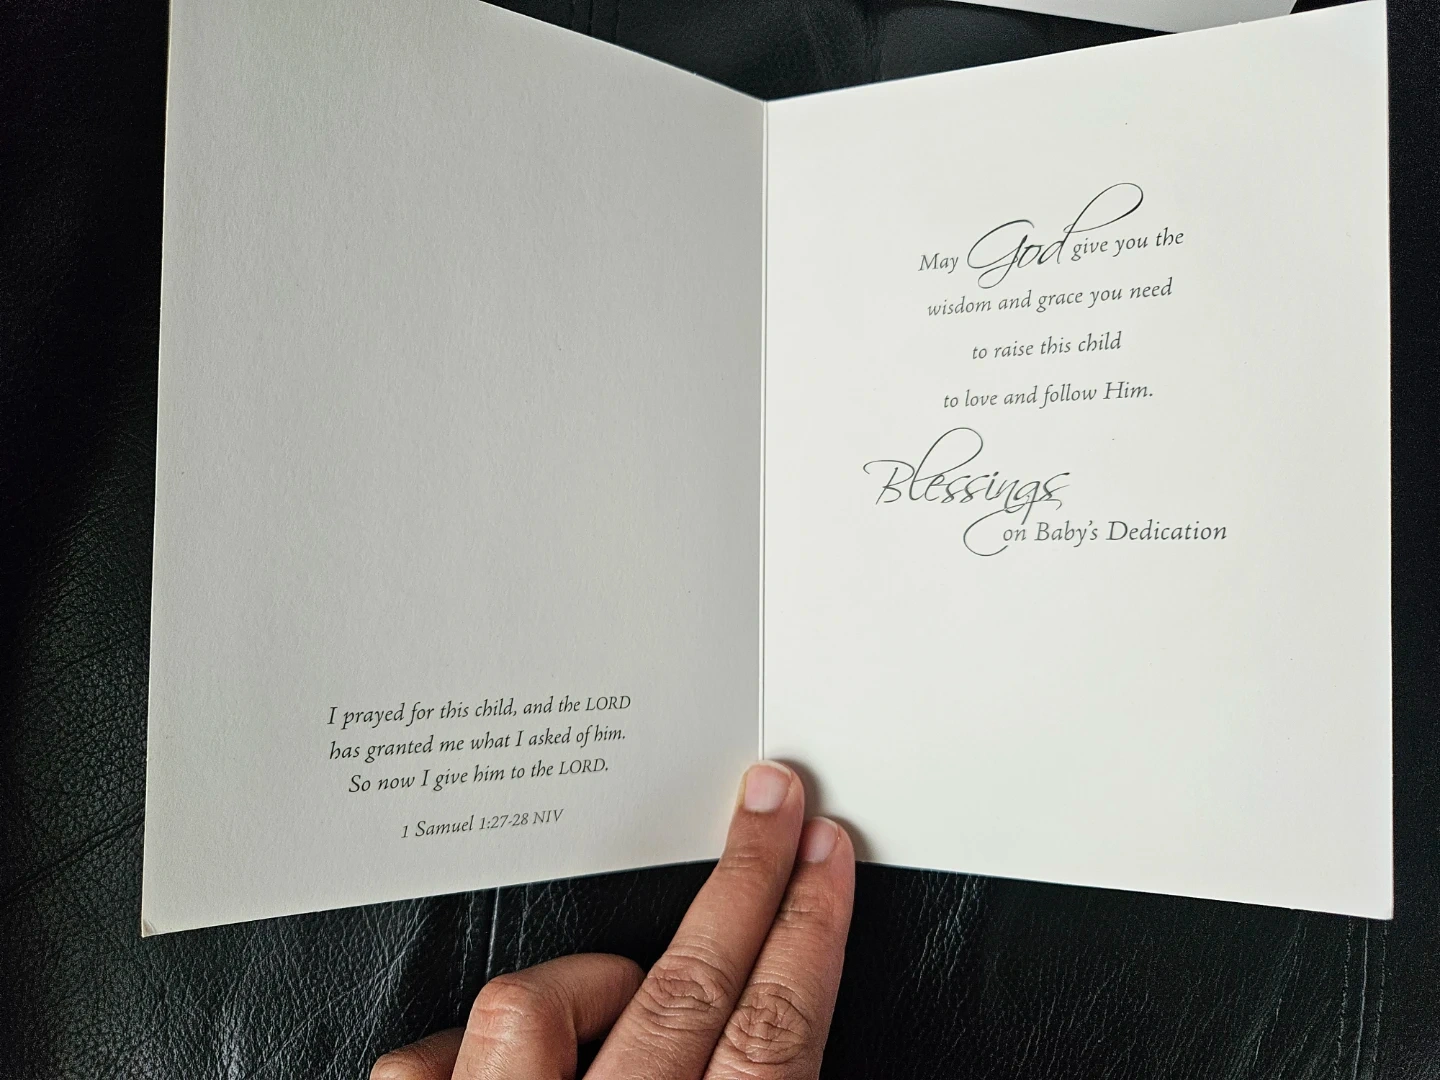 I prayed for this child, and the LORD
has granted me what I asked of him.
So now I give him to the LORD.
1 Samuel 1:27-28 NIV
May God give you the
wisdom and grace you need
to raise this child
to love and follow Him.
Blessings
on Baby's Dedication